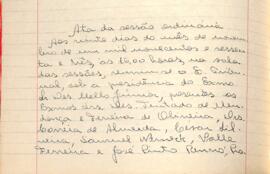 Ata da sessão ordinária
Aos vinte dias do mês de novem
bro de um mil novecentos e sessen
ta e três, às 16,00 horas, na sala
das sessões, reuniu-se o E. Tribu
nal, sob a presidência do Exmo
Sr. Des. Mello Júnior, presentes os
Exmos Srs. Des. Furtado de Men
donça e Ferreira de Oliveira, Drs.
Correia de Almeida, Cesar Sil
veira, Samuel Werneck, Valle
Ferreira e José Pinto Renno,